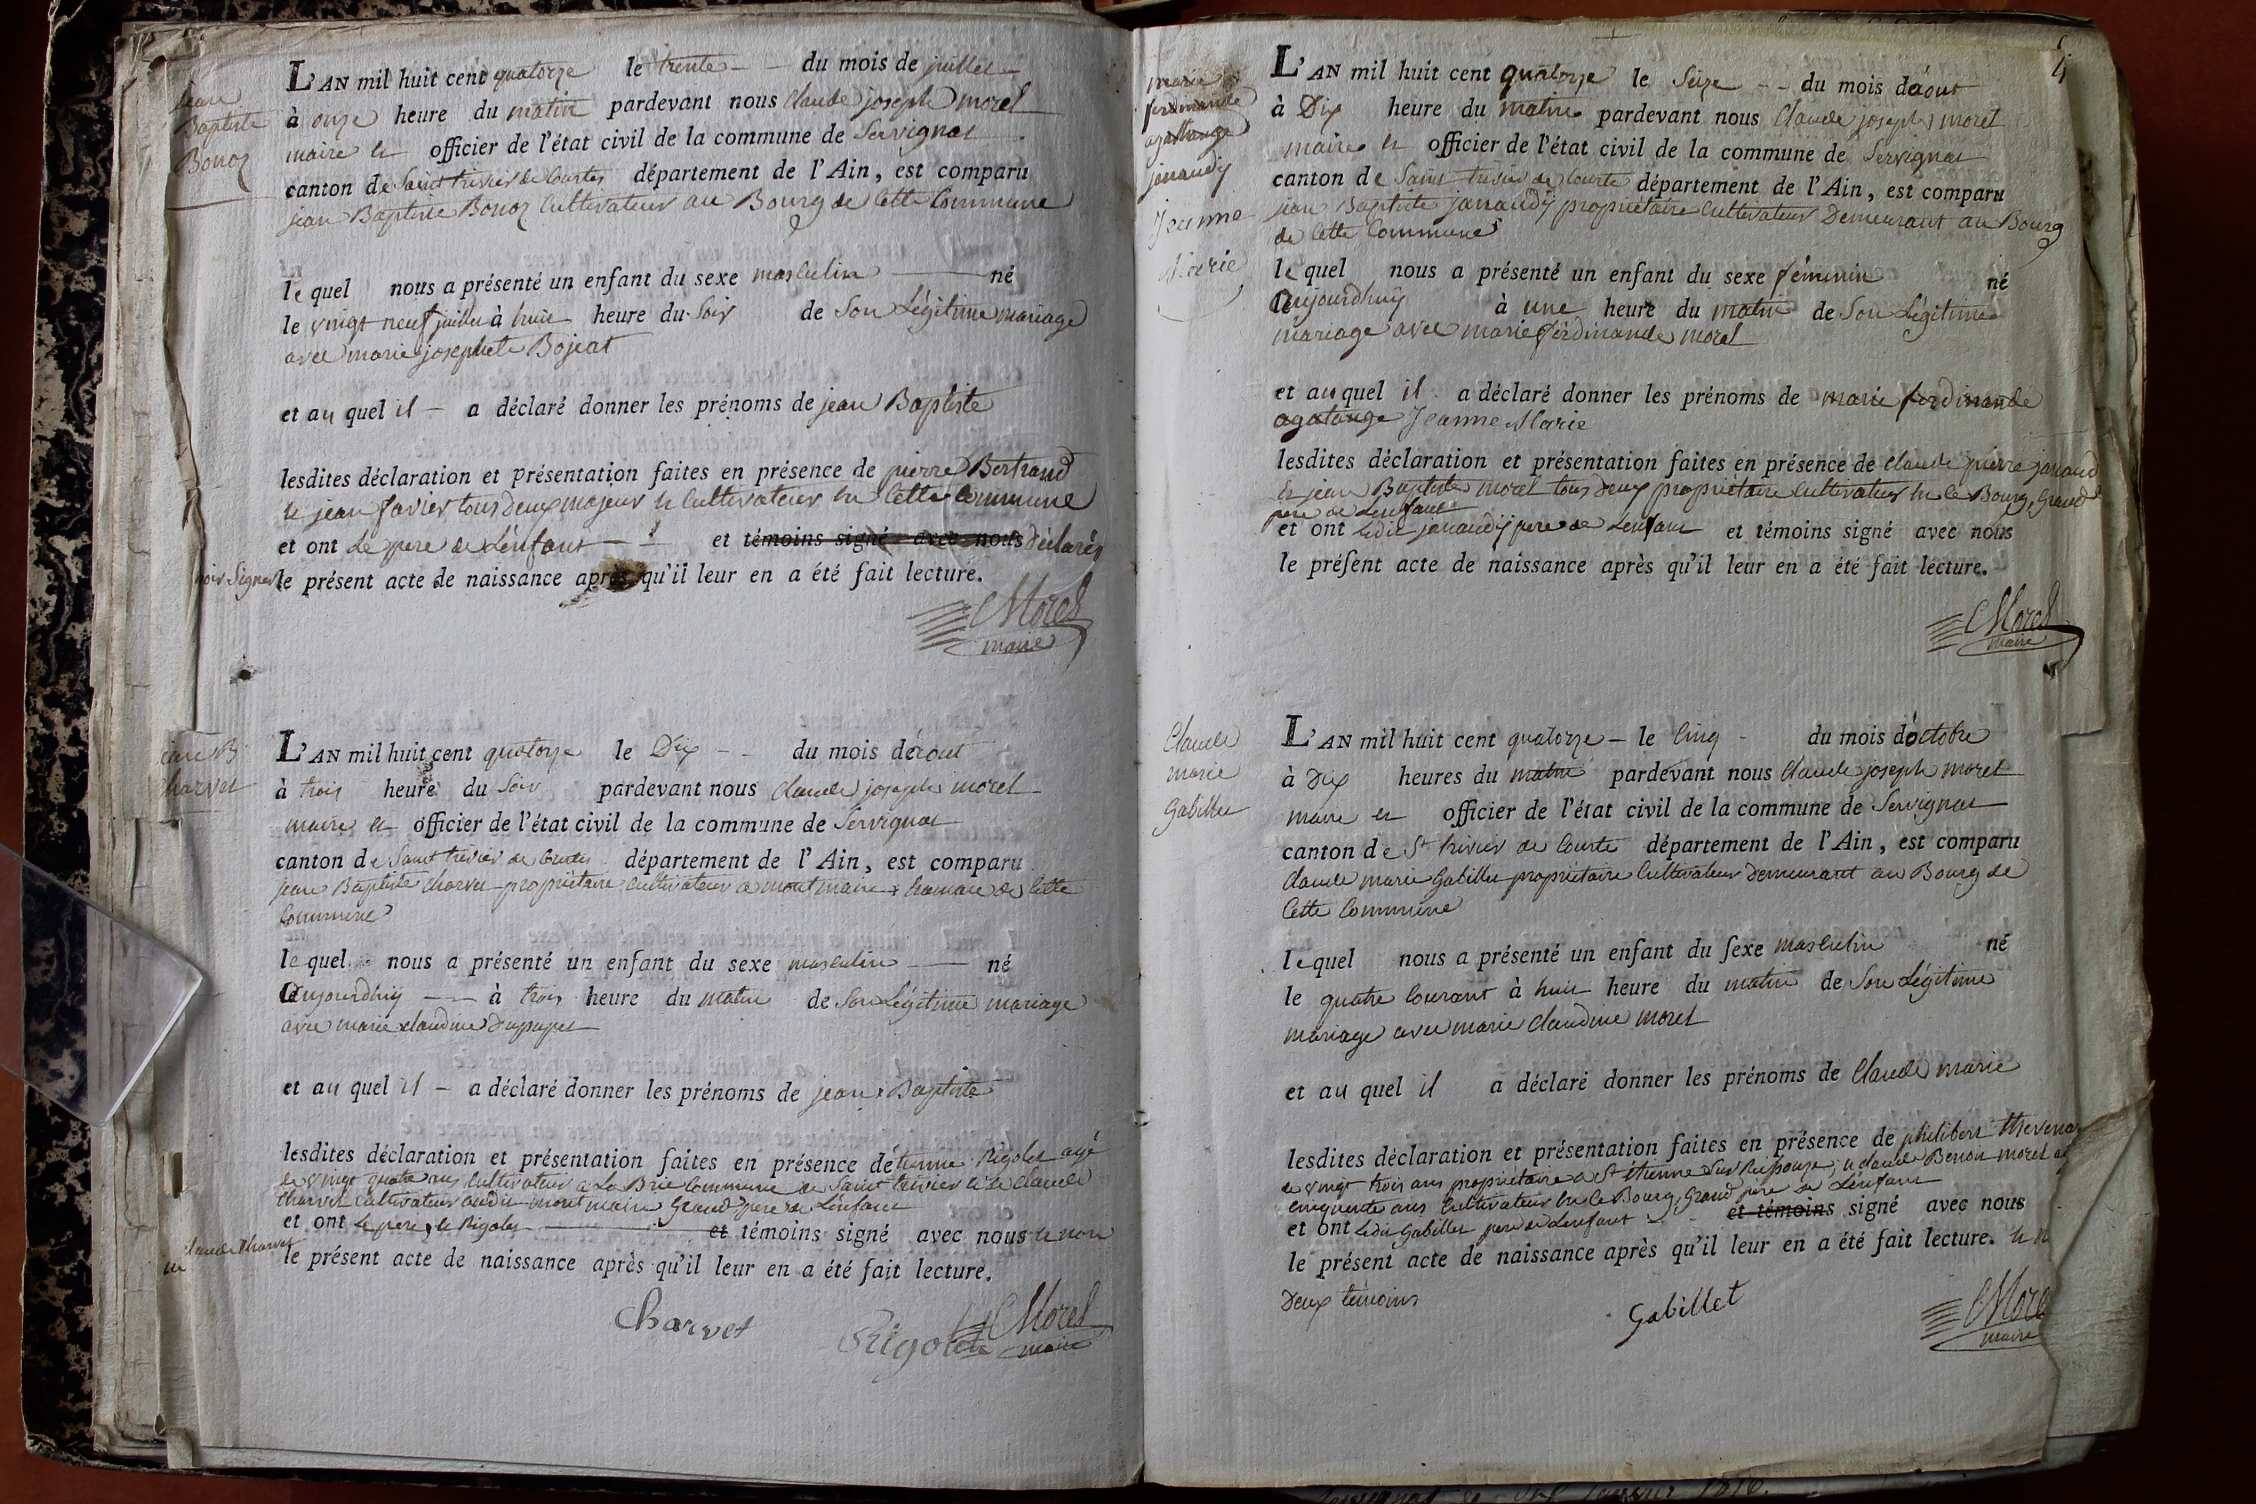 jean
Baptiste
Bonoz
L'AN mil huit cent quatorze le trente du mois de juillet
à onze heure du matin pardevant nous Claude joseph morel
maire et officier de l'état civil de la commune de Servignat
canton de Saint trivier de Courtes département de l'Ain, est comparu
jean Baptiste Bonoz Cultivateur au Bourg de Cette Commune
lequel nous a présenté un enfant du sexe masculin né
le vingt neuf juillet à huit heure du Soir de Son Légitime mariage
avec marie josephete Bojeat
et au quel il a déclaré donner les prénoms de jean Baptiste
lesdites déclaration et présentation faites en présence de pierre Bertrand
et jean favier tous deux majeur et Cultivateur en Cette Commune
et ont Le pere de L'enfant et témoins signé avec nous déclarés
noir Signer le présent acte de naissance après qu'il leur en a été fait lecture.
Morel
maire
jean B
Charvet
L'AN mil huit cent quatorze le Dix du mois d'aout
à trois heure du Soir pardevant nous Claude joseph morel
maire et officier de l'état civil de la commune de Servignat
canton de Saint trivier de Courtes département de l'Ain, est comparu
jean Baptiste Charvet propriétaire Cultivateur a montmain hamau de Cette
Commune
lequel nous a présenté un enfant du sexe masculin né
aujourdhuy à trois heure du matin de Son Légitime mariage
avec marie claudine Dupupet
et au quel il a déclaré donner les prénoms de jean Baptiste
lesdites déclaration et présentation faites en présence d'étienne Rigolet agé
de vingt quatre ans Cultivateur a La Brie Commune de Saint trivier et de Claude
Charvet Cultivateur audit montmain Grand pere de L'enfant
et ont Le pere, le Rigolet et témoins signé avec nous et non
Claude Charvet le présent acte de naissance après qu'il leur en a été fait lecture.
Charvet
Rigolet
Morel
maire
4
marie
ferdinande
agathange
janaudy
Jeanne
Marie
L'AN mil huit cent quatorze le Seize du mois d'aout
à Dix heure du matin pardevant nous Claude joseph morel
maire et officier de l'état civil de la commune de Servignat
canton de Saint trivier de Courte département de l'Ain, est comparu
jean Baptiste janaudy propriétaire Cultivateur Demeurant au Bourg
de Cette Commune
lequel nous a présenté un enfant du sexe féminin né
aujourdhuy à une heure du matin de Son Légitime
mariage avec marie ferdinande morel
et au quel il a déclaré donner les prénoms de marie ferdinande
agatange Jeanne Marie
lesdites déclaration et présentation faites en présence de claude pierre janaud
et jean Baptiste morel tous deux propriétaire Cultivateur en Ce Bourg, Grand
pere de L'enfant
et ont Ledit janaudy pere de L'enfant et témoins signé avec nous
le présent acte de naissance après qu'il leur en a été fait lecture.
Morel
maire
Claude
marie
Gabillet
L'AN mil huit cent quatorze le Cinq du mois d'octobre
à Dix heures du matin pardevant nous Claude joseph morel
maire et officier de l'état civil de la commune de Servignat
canton de St trivier de Courte département de l'Ain, est comparu
Claude marie Gabillet propriétaire Cultivateur demeurant au Bourg de
Cette Commune
lequel nous a présenté un enfant du sexe masculin né
le quatre Courant à huit heure du matin de Son Légitime
mariage avec marie Claudine morel
et au quel il a déclaré donner les prénoms de Claude marie
lesdites déclaration et présentation faites en présence de philibert thevena
de vingt trois ans propriétaire a St étienne Sur Reissouze, et claude Benoit morel ag
cinquante ans Cultivateur en Ce Bourg, Grand pere de L'enfant
et ont Ledit Gabillet pere de L'enfant et témoins signé avec nous
le présent acte de naissance après qu'il leur en a été fait lecture. et n
Deux témoins
Gabillet
Morel
maire